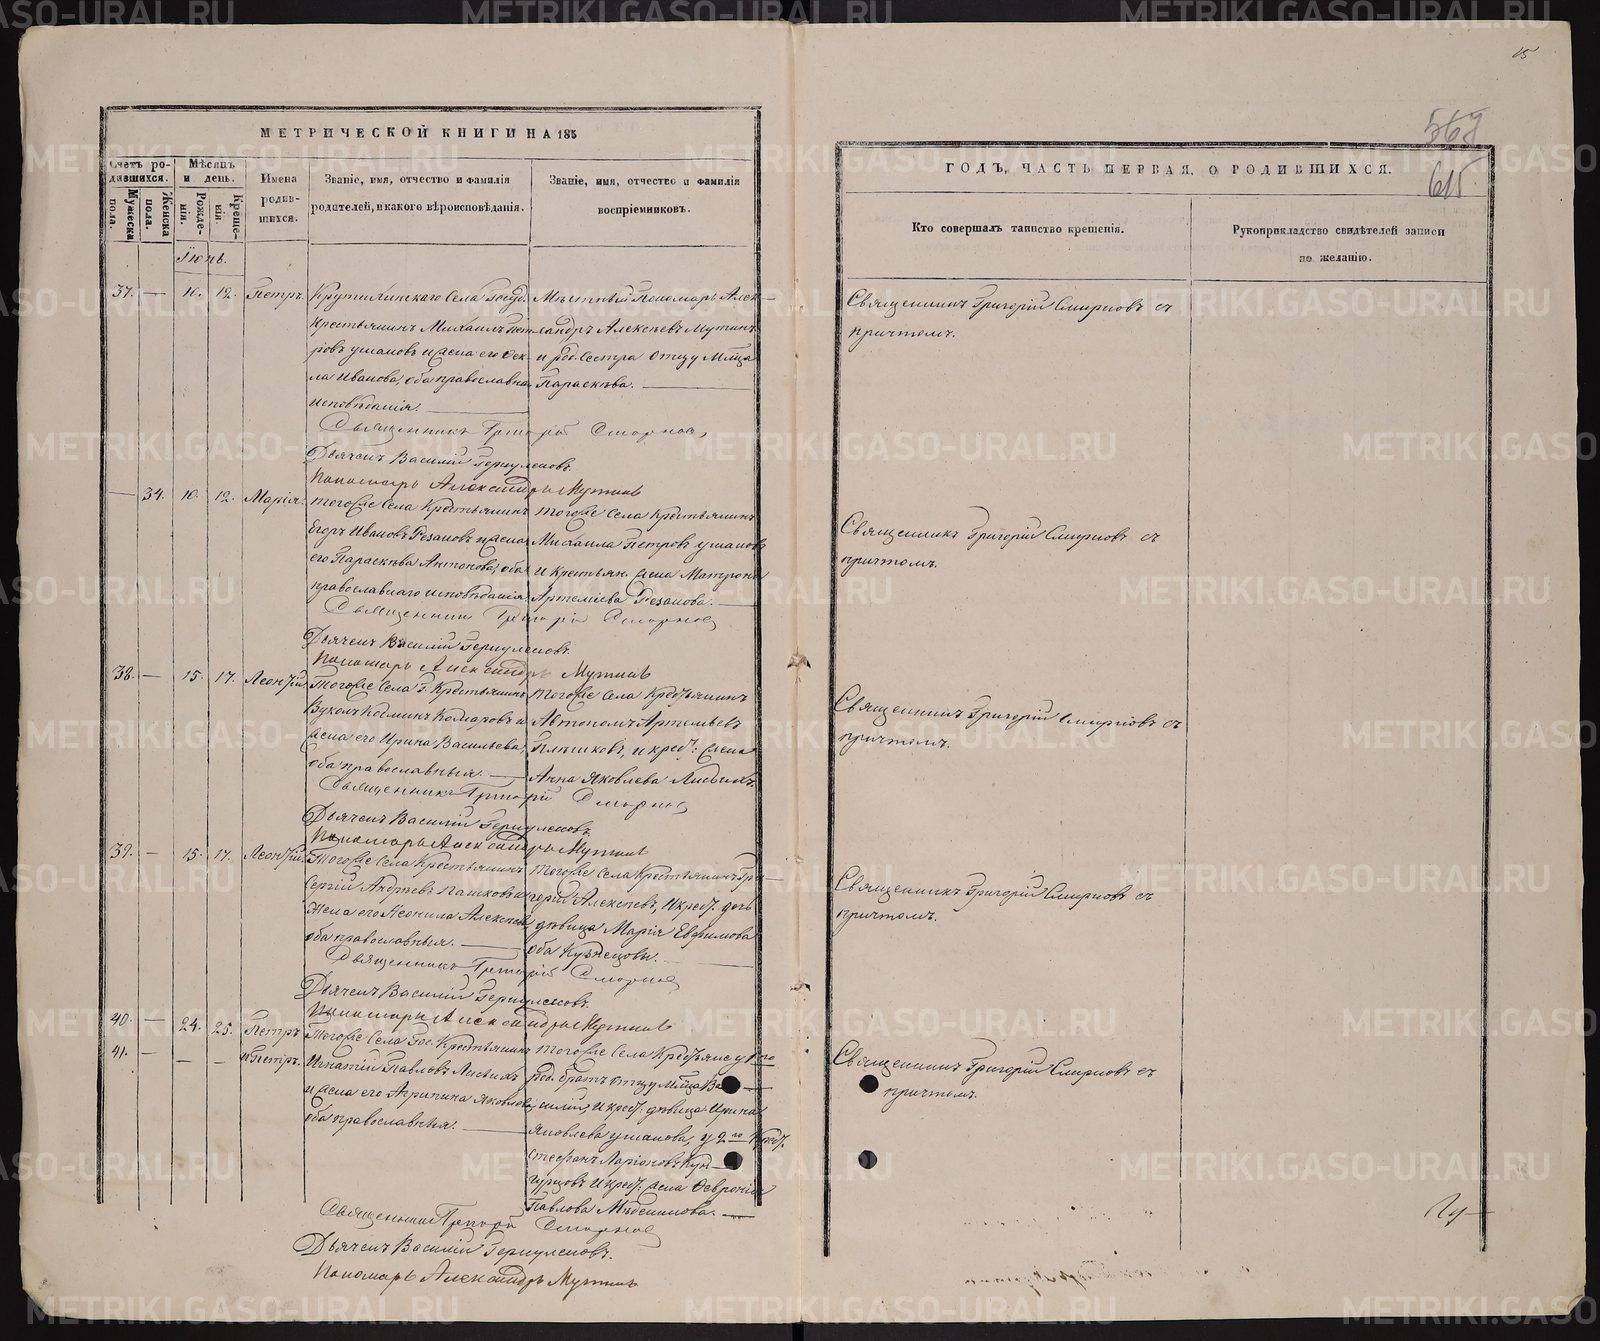 15
МЕТРИЧЕСКОЙ КНИГИ НА 185
ГОДЪ, ЧАСТЬ ПЕРВАЯ, О РОДИВШИХСЯ.
615
Счетъ родившихся.
Мѣсяцъ и день.
Имена родившихся.
Званіе, имя, отчество и фамилія
родителей, и какого вѣроисповѣданія.
Званіе, имя, отчество и фамилія
воспріемниковъ.
Мужеска пола.
Женска пола.
Рожденія.
Крещенія.
Кто совершалъ таинство крещенія.
Рукоприкладство свидѣтелей записи
по желанію.
Іюнь.
37. — 10. 12. Петръ.
Крутихинскаго Села Госуд.
Крестьянинъ Михаилъ Пет-
ровъ Ушаковъ и жена его Фек-
ла Иванова, оба православна
исповѣданія.
Мѣстный Пономарь Алек-
сандръ Алексѣевъ Мутинъ
и род. Сестра Отцу Млдца
Параскѣва.
Священникъ Григорій Смирновъ съ
причтомъ.
Священникъ Григорій Смирновъ
Дьячекъ Василій
Пономарь Александръ Мутинъ
— 34. 10. 12. Марія.
Тогоже Села Крестьянинъ
Егоръ Ивановъ Рѣзановъ и жена
его Параскѣва Антонова, оба
православнаго исповѣданія.
Тогоже Села Крестьянинъ
Михаила Петровъ Ушаковъ
и Крестьян. жена Матрона
Артеміева Рѣзанова.
Священникъ Григорій Смирновъ съ
причтомъ.
Священникъ Григорій Смирновъ
Дьячекъ Василій
Пономарь Александръ Мутинъ
38. — 15. 17. Леонтій.
Тогоже Села Г. Крестьянинъ
Вуколъ Козминъ Комаровъ и
жена его Ирина Васильева,
оба православныя.
Тогоже Села Крестьянинъ
Автономъ Артемьевъ
и крест: жена
Анна Яковлева
Священникъ Григорій Смирновъ съ
причтомъ.
Священникъ Григорій Смирновъ
Дьячекъ Василій
Пономарь Александръ Мутинъ
39. — 15. 17. Леонтій.
Тогоже Села Крестьянинъ
Сергій Андреевъ Пашковъ и
жена его Неонила Алексѣева
оба православныя.
Тогоже Села Крестьянинъ Гри-
горій Алексѣевъ, и крест. дочь
дѣвица Марія Евфимова
оба Кузнецовы.
Священникъ Григорій Смирновъ съ
причтомъ.
Священникъ Григорій Смирновъ
Дьячекъ Василій
Пономарь Александръ Мутинъ
40. — 24. 25. Петръ
41. — — — и Петръ.
Тогоже Села Гос. Крестьянинъ
Игнатій Павловъ
и жена его Агрипина Яковлева,
оба православныя.
Тогоже Села Крестьяне у 1го
род. братъ отцу Млдца Ва-
силій, и крест. дѣвица Ирина
Яковлева Ушакова, у 2го Крест.
Стефанъ Ларіоновъ Кун-
гурцовъ и крест: жена Февронія
Павлова
Священникъ Григорій Смирновъ съ
причтомъ.
Священникъ Григорій Смирновъ
Дьячекъ Василій
Пономарь Александръ Мутинъ
METRIKI.GASO-URAL.RU